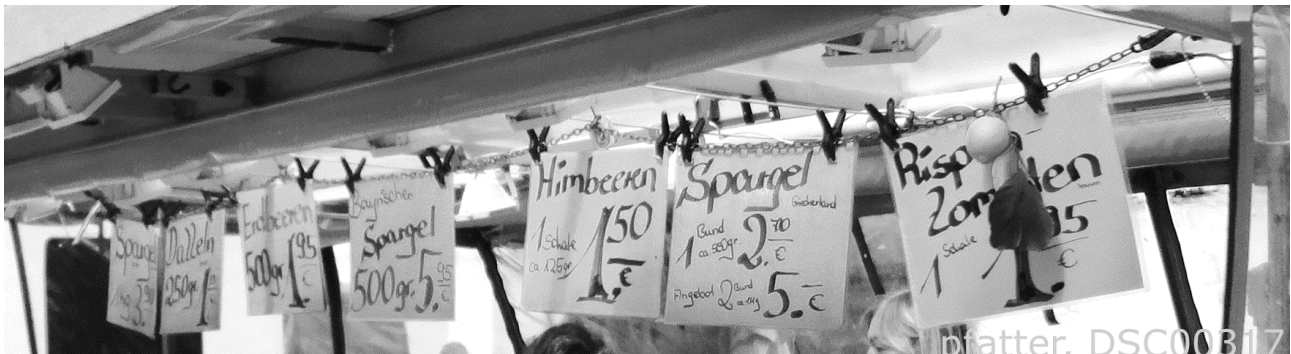 Spargel
1 kg 3.90
Datteln
250gr. 1.
Erdbeeren
500gr. 1.95
€
Bayrischer
Spargel
500gr. 5.95
€
Himbeeren
1 Schale 1.50
ca 125gr. €
Spargel
Griechenland
1 Bund 2.70
ca 500gr. €
Angebot 2 Bund 5.-
ca 1kg €
1 Schale
€
pfatter, DSC00317